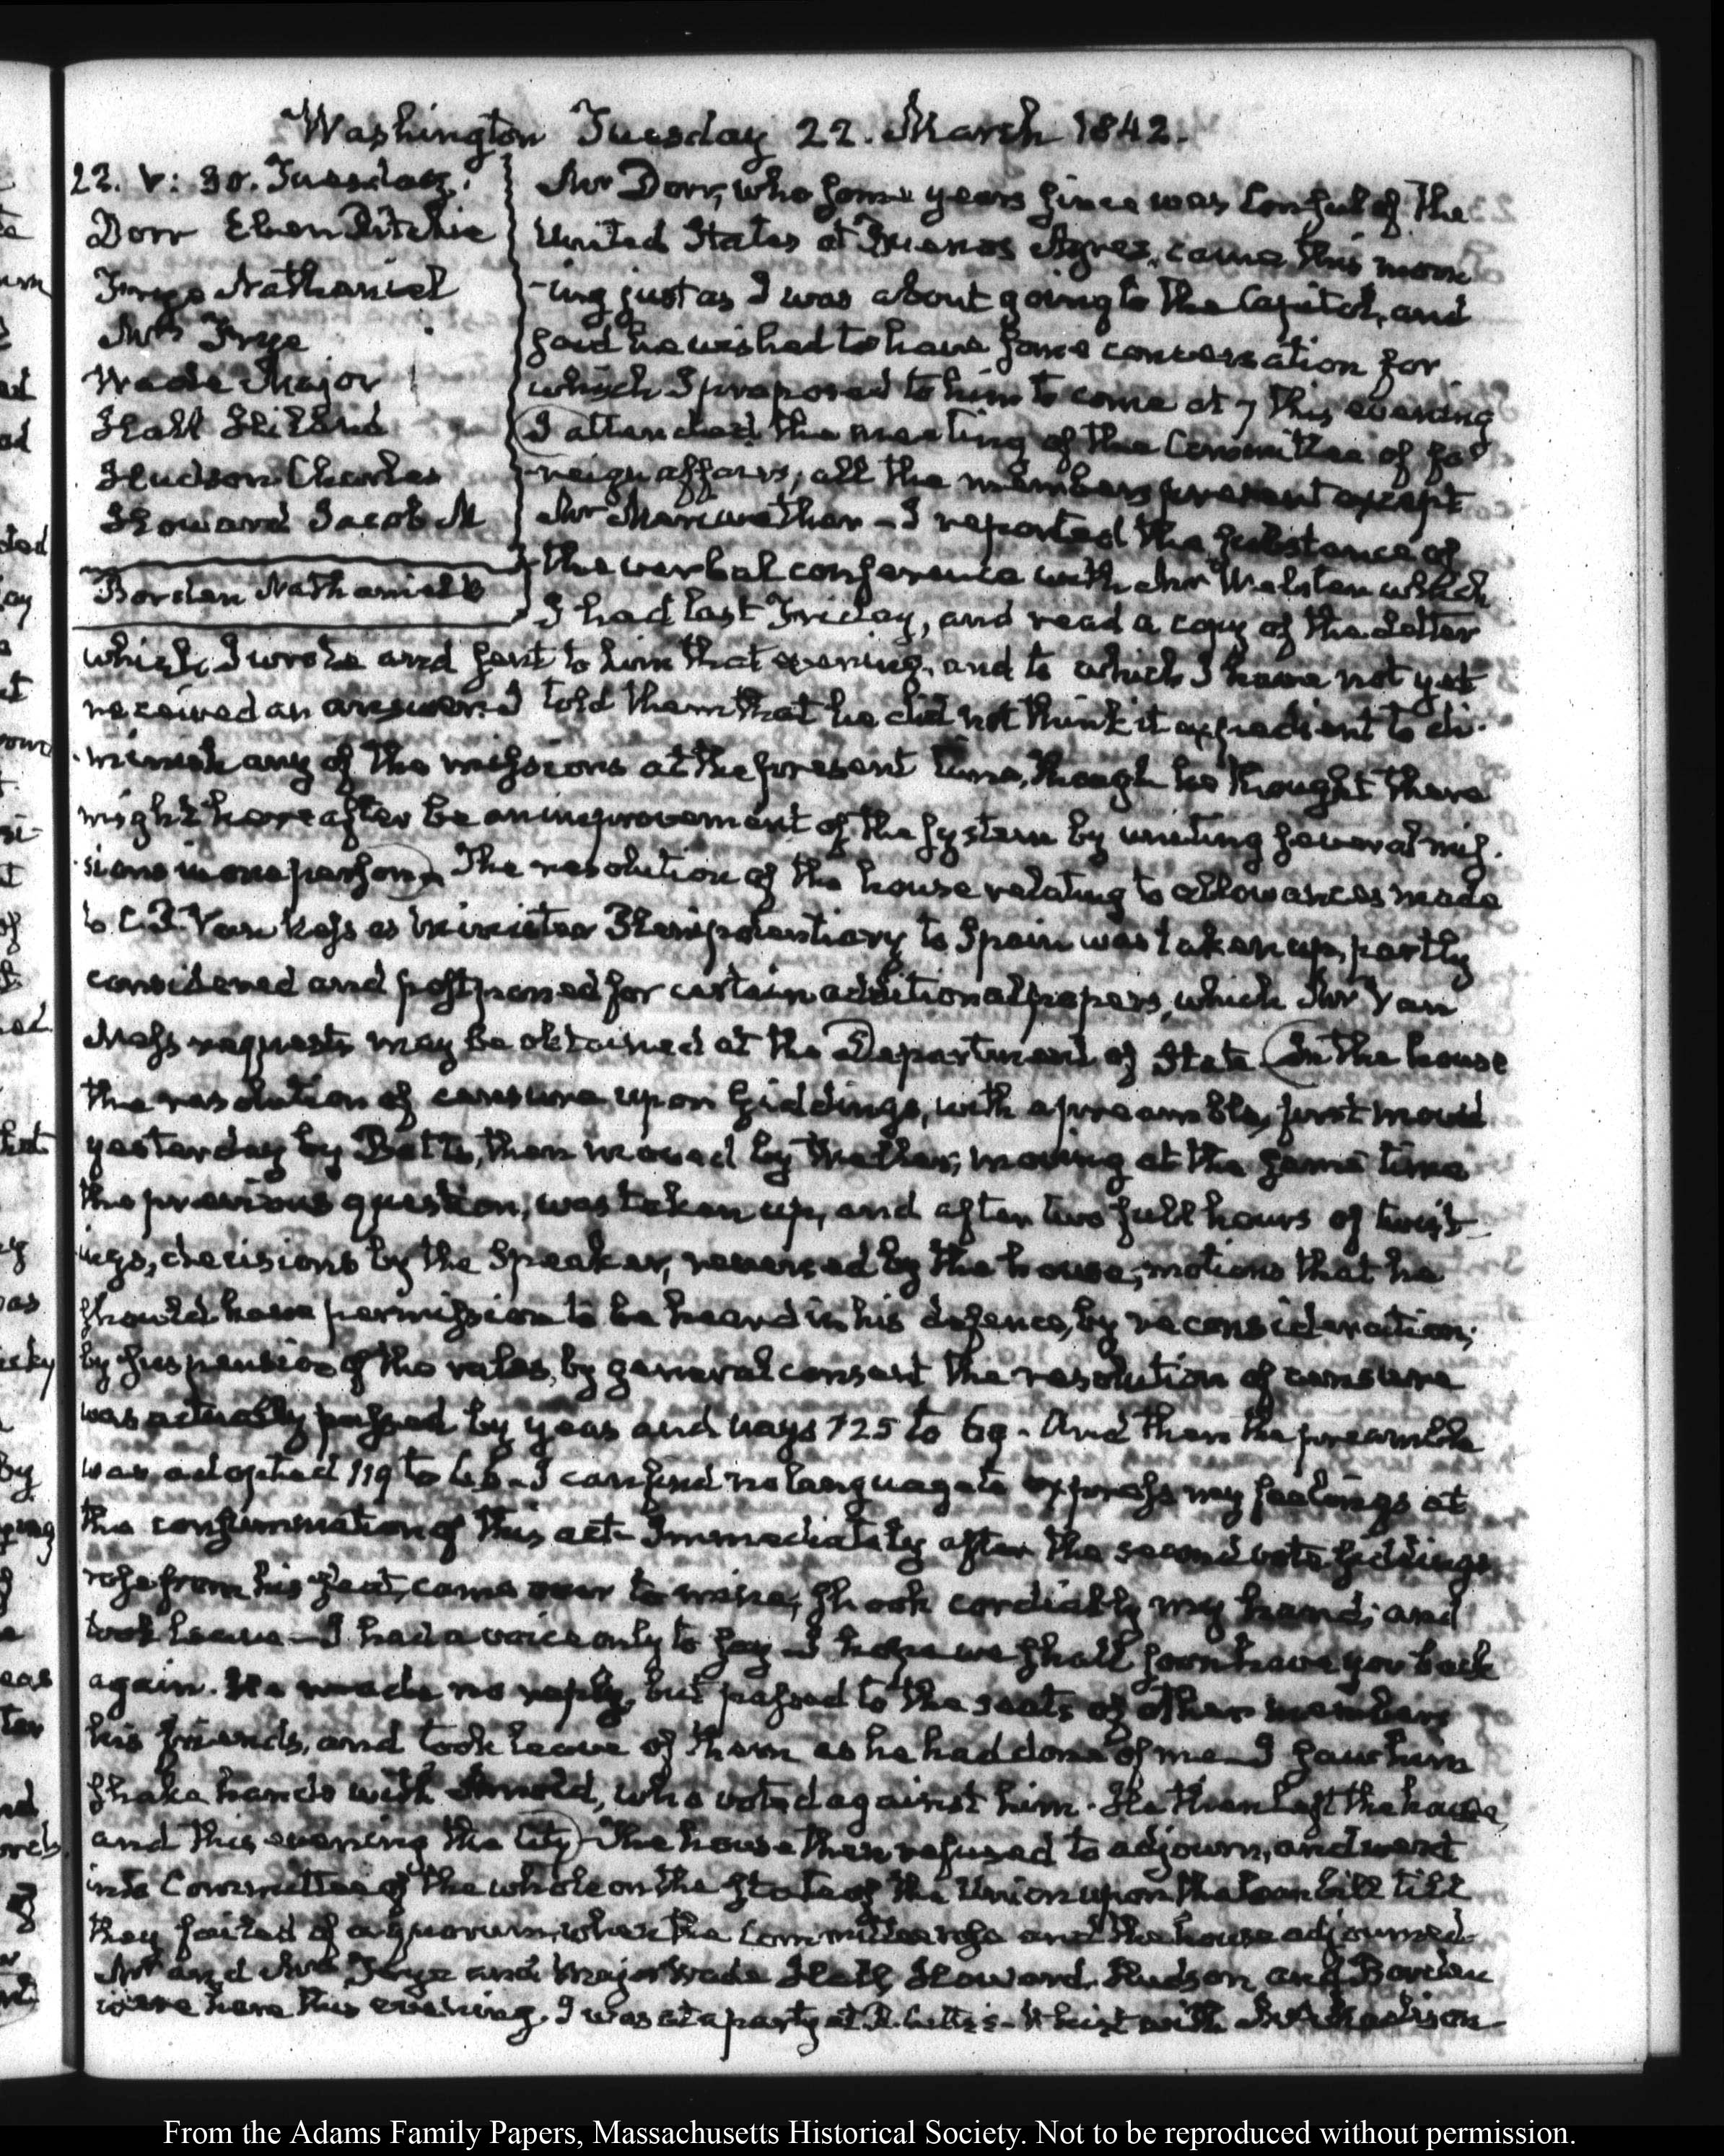 Washington Tuesday 22. March 1842.
22. V: 30. Tuesday.
Dorr Eben Ritchie
Frye Nathaniel
Mrs Frye
Wade Major
Hall Hiland
Hudson Charles
Howard Jacob M
Borden Nathaniel B
Mr Dorr, who some years since was Consul of the
United States at Buenos Ayres, came this morn
-ing just as I was about going to the Capitol, and
said he wished to have some conversation for
which I proposed to him to come at 7 this evening
I attended the meeting of the Committee of fo
-reign affairs, all the members present except
Mr Meriwether - I reported the substance of
the verbal conference with Mr Webster which
I had last Friday, and read a copy of the Letter
which I wrote and sent to him that evening, and to which I have not yet
received an answer. I told them that he did not think it expedient to di-
-minish any of the missions at the present time, though he thought there
might hereafter be an improvement of the system by uniting several mis-
-sions in one person. The resolution of the house relating to allowances made
to C. P. Van Ness as Minister Plenipotentiary to Spain was taken up, partly
considered and postponed for certain additional papers, which Mr Van
Ness requests may be obtained at the Department of State. In the house
the resolution of censure upon Giddings, with a preamble, first moved
yesterday by Botts, then moved by Weller, moving at the same time
the previous question, was taken up, and after two full hours of twist-
ings, decisions by the Speaker, reversed by the house, motions that he
should have permission to be heard in his defence, by reconsideration,
by suspension of the rules, by general consent the resolution of censure
was actually passed by yeas and nays 125 to 69. And then the preamble
was adopted 119 to 66 - I can find no language to express my feelings at
the consummation of this act - Immediately after the second vote Giddings
rose from his seat, came over to mine, shook cordially my hand, and
took leave - I had a voice only to say - I hope we shall soon have you back
again. He made no reply, but passed to the seats of other members
his friends, and took leave of them as he had done of me - I saw him
shake hands with Arnold, who voted against him. He then left the house,
and this evening the City. The house then refused to adjourn, and went
into Committee of the whole on the state of the Union upon the loan bill till
they failed of a quorum, when the Committee rose and the house adjourned.
Mr and Mrs Frye and Major Wade Hall, Howard, Hudson and Borden
were here this evening. I was at a party at Whist with Mrs Madison